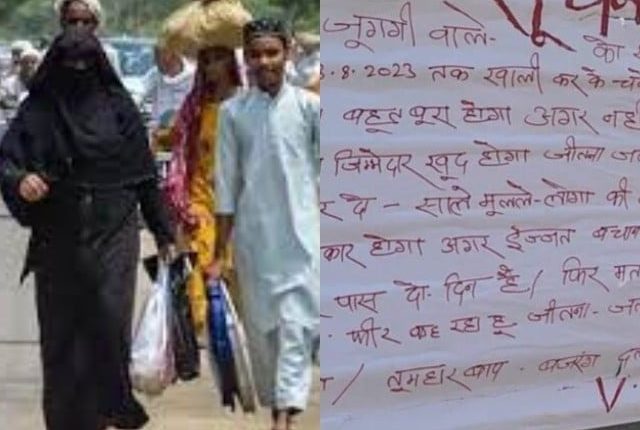 जूगगी वाले-
का
.8.2023 तक खाली कर के-च
बहूत बूरा होगा अगर नह
जिम्मेदार खूद होगा जीतना ज
र दे - साले मूलले-लोगो की
कार होगा अगर ईज्जत बचा
पास दो-दिन है/ फिर मत
फीर कह रहा हू जीतना-ज
/ तूमहार बाप- बजरंग द